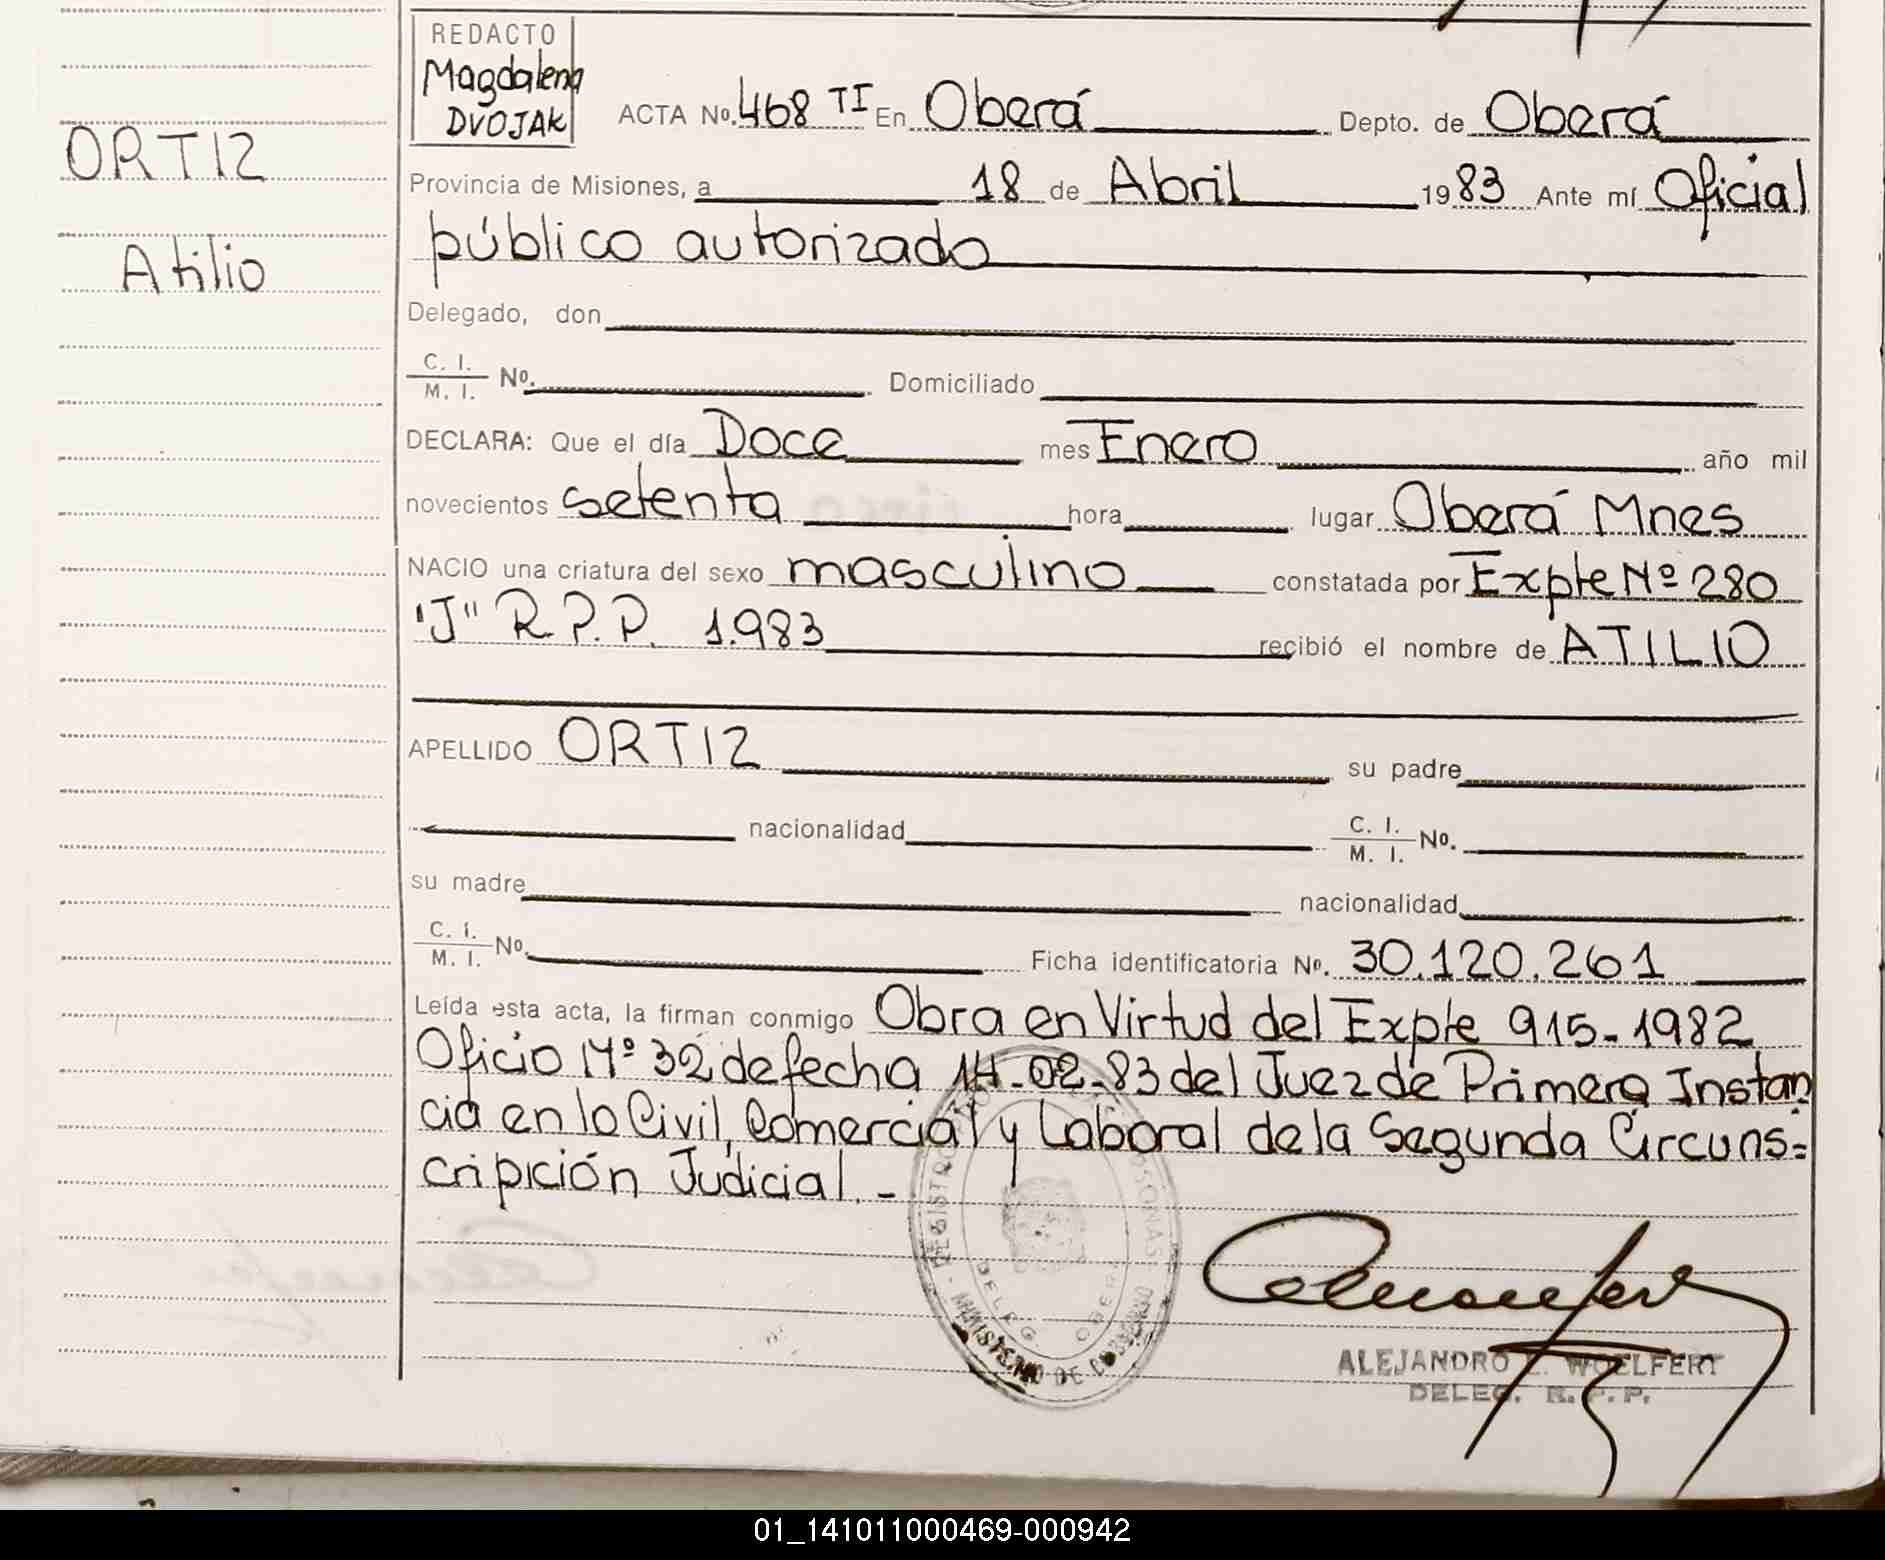 REDACTO
Magdalena
DVOJAK
ORTIZ
Atilio
ACTA No. 468 TI En Oberá Depto. de Oberá
Provincia de Misiones, a 18 de Abril 1983 Ante mí Oficial
público autorizado
Delegado, don
C. I.
M. I. No. Domiciliado
DECLARA: Que el día Doce mes Enero año mil
novecientos setenta hora lugar Oberá Mnes
NACIO una criatura del sexo masculino constatada por Expte Nº 280
"J" R.P.P. 1.983 recibió el nombre de ATILIO
APELLIDO ORTIZ su padre
nacionalidad C. I.
M. I. No.
su madre nacionalidad
C. I.
M. I. No. Ficha identificatoria No. 30.120.261
Leída esta acta, la firman conmigo Obra en Virtud del Expte 915-1982
Oficio Nº 32 de fecha 14-02-83 del Juez de Primera Instan
cia en lo Civil, Comercial y Laboral de la Segunda Circuns=
cripición Judicial.-
MINISTERIO DE GOBIERNO
DELEG. OBERA
ALEJANDRO E. WOELFERT
DELEG. R. P. P.
01_141011000469-000942